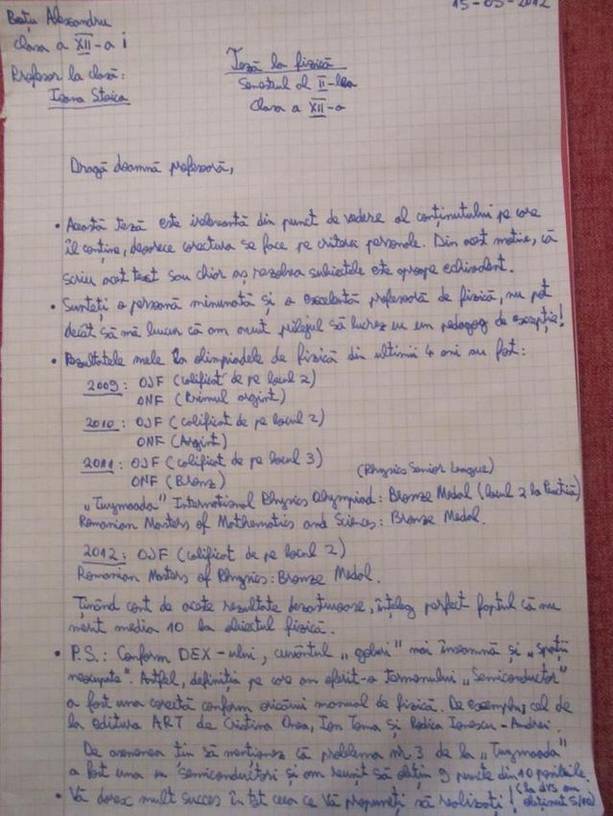 15-05-2012
Bești Alexandru
Clasa a XII-a i
Profesor la clasă:
Ioana Stoica
Teză la fizică
Semestrul al II-lea
Clasa a XII-a
Dragă doamnă profesoară,
• Această teză este irelevantă din punct de vedere al conținutului pe care
îl conține, deoarece corectura se face pe criterii personale. Din acest motiv, că
scriu acest text sau chiar aș rezolva subiectele este aproape echivalent.
• Sunteți o persoană minunată și o excelentă profesoară de fizică, nu pot
decât să mă bucur că am avut prilejul să lucrez cu un pedagog de excepție!
• Rezultatele mele la olimpiadele de fizică din ultimii 4 ani au fost:
2009: OJF (calificat de pe locul 2)
ONF (Primul argint)
2010: OJF (calificat de pe locul 2)
ONF (Argint)
2011: OJF (calificat de pe locul 3)
ONF (Bronz)
(Physics Senior League)
„Tuymaada" International Physics Olympiad: Bronze Medal (locul 2 la Practică)
Romanian Masters of Mathematics and Sciences: Bronze Medal.
2012: OJF (calificat de pe locul 2)
Romanian Masters of Physics: Bronze Medal.
Ținând cont de aceste rezultate dezastruoase, înțeleg perfect faptul că nu
merit media 10 la obiectul fizică.
• P.S.: Conform DEX-ului, cuvântul „goluri" mai înseamnă și „spații
neocupate". Astfel, definiția pe care am oferit-o termenului „Semiconductor"
a fost una corectă conform oricărui manual de fizică. De exemplu, cel de
la editura ART de Cristina Onea, Ion Toma și Rodica Ionescu-Andrei.
De asemenea țin să menționez că problema nr. 3 de la „Tuymaada"
a fost una cu semiconductori și am reușit să obțin 9 puncte din 10 posibile.
(la dvs am
obținut 5/10)
• Vă doresc mult succes în tot ceea ce Vă propuneți să realizați!